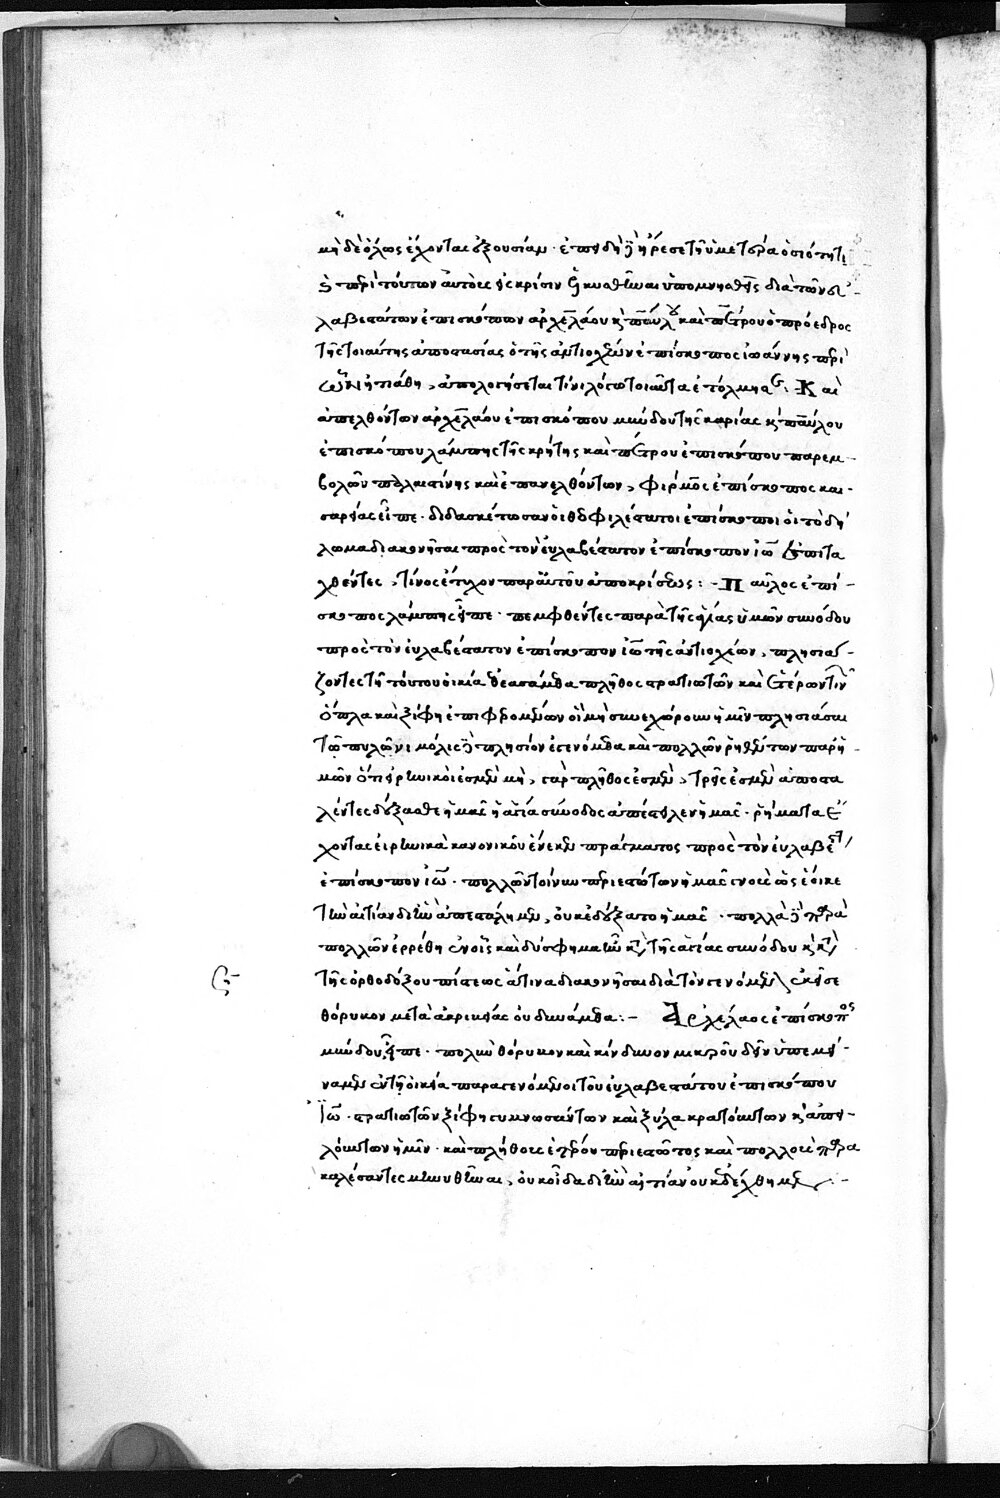 μὴ δὲ ὅλως ἔχοντας ἐξουσίαν · ἐπειδὴ δὲ ἤρεσε τῇ ὑμετέρα ὁσιότητι
καὶ περὶ τούτων αὐτοῖς εἰς κρίσιν κινηθῆναι ὑπομνησθεὶς διὰ τῶν εὐ-
λαβεστάτων ἐπισκόπων ἀρχελάου καὶ παύλου καὶ πέτρου ὁ πρόεδρος
τῆς τοιαύτης ἀποστασίας ὁ τῆς ἀντιοχέων ἐπίσκοπος ἰωάννης περὶ
ὧν ἠτιάθη, ἀπολογήσεται τίνι λόγω τοιαῦτα ἐτόλμησεν :· Καὶ
ἀπελθόντων ἀρχελάου ἐπισκόπου μύνδου τῆς καρίας καὶ παύλου
ἐπισκόπου λάμπης τῆς κρήτης καὶ πέτρου ἐπισκόπου παρεμ-
βολῶν παλαιστίνης καὶ ἐπανελθόντων, φίρμος ἐπίσκοπος και-
σαρείας εἶπε · διδασκέτωσαν οἱ θεοφιλέστατοι ἐπίσκοποι οἱ τὸ δή-
λωμα διακονῆσαι πρὸς τὸν εὐλαβέστατον ἐπίσκοπον ἰω ἐπιστα
λθέντες, τίνος ἔτυχον παρ αὐτοῦ ἀποκρίσεως : - Παῦλος ἐπί-
σκοπος λάμπης εἶπε · πεμφθέντες παρὰ τῆς ἁγίας ὑμῶν συνόδου
πρὸς τὸν εὐλαβέστατον ἐπίσκοπον ἰω τῆς ἀντιοχέων, πλησιά-
ζοντες τῇ τούτου οἰκία ἐθεασάμεθα πλῆθος στρατιωτῶν καὶ ἑτέρων τινῶν
ὅπλα καὶ ξίφη ἐπιφερομένων οἳ μὴ συνεχώρουν ἡμῖν πλησιάσαι
τῶ πυλῶνι μόλις δὲ πλησίον ἐγενόμεθα καὶ πολλῶν ῥηθέντων παρ ἡ-
μῶν ὅπερ εἰρηνικοὶ ἐσμὲν μὴ, γὰρ πλῆθος ἐσμὲν, τρεῖς ἐσμὲν ἀποστα
λέντες δέξασθε ἡμᾶς ἡ ἁγία σύνοδος ἀπέστειλεν ἡμᾶς · ῥήματα ἔ-
χοντας εἰρηνικὰ κανονικοῦ ἕνεκεν πράγματος πρὸς τὸν εὐλαβέστατον
ἐπίσκοπον ἰω · πολλῶν τοίνυν περιεστώτων ἡμᾶς γνοὺς ὡς ἔοικε
τὴν αἰτίαν δι ἣν ἀπεστάλημεν, οὐκ ἐδέξατο ἡμᾶς · πολλὰ δὲ παρὰ
πολλῶν ἐρρέθη ἐν οἷς καὶ δύσφημα ἦν κατὰ τῆς ἁγίας συνόδου καὶ κατὰ
τῆς ὀρθοδόξου πίστεως ἅτινα διακονῆσαι διὰ τὸν γενόμενον ἐκεῖσε
θόρυβον μετὰ ἀκριβείας οὐ δυνάμεθα :- Ἀρχέλαος ἐπίσκοπος
μύνδου, εἶπε · πολὺν θόρυβον καὶ κίνδυνον μικροῦ δεῖν ὑπεμεί-
ναμεν ἐν τῇ οἰκία παραγενόμενοι τοῦ εὐλαβεστάτου ἐπισκόπου
ἰω · στρατιωτῶν ξίφη γυμνωσάντων καὶ ξύλα κρατούντων καὶ ἀπει-
λούντων ἡμῖν · καὶ πλήθους ἑτέρου περιεστῶτος καὶ πολλοὺς παρα
καλέσαντες μηνυθῆναι, οὐκ οἶδα δι ἣν αἰτίαν οὐκ ἐδέχθημεν :-